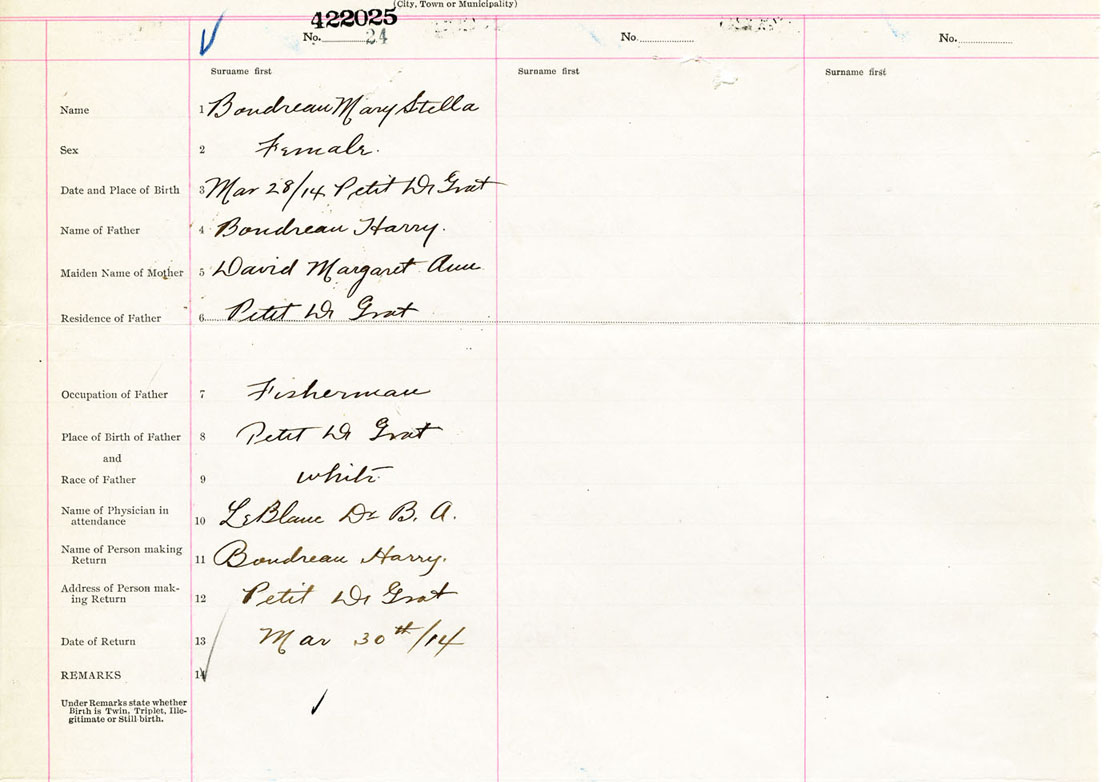 (City, Town or Municipality)
422025
No. 24 No. No.
Surname first Surname first Surname first
Name 1 Boudreau Mary Stella
Sex 2 Female.
Date and Place of Birth 3 Mar 28/14 Petit De Grat
Name of Father 4 Boudreau Harry.
Maiden Name of Mother 5 David Margaret Ann
Residence of Father 6 Petit De Grat
Occupation of Father 7 Fisherman
Place of Birth of Father 8 Petit De Grat
and
Race of Father 9 white
Name of Physician in
attendance 10 LeBlanc Dr B. A.
Name of Person making
Return 11 Boudreau Harry.
Address of Person mak-
ing Return 12 Petit De Grat
Date of Return 13 Mar 30th/14
REMARKS 14
Under Remarks state whether
Birth is Twin, Triplet, Ille-
gitimate or Still birth.